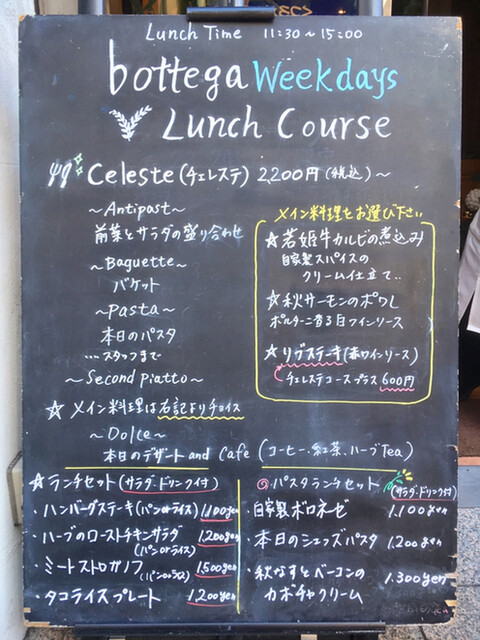 Lunch Time 11:30〜15:00
bottega Weekdays
Lunch Course
Celeste (チェレステ) 2,200円(税込)〜
〜Antipast〜
前菜とサラダの盛り合わせ
〜Baguette〜
バケット
〜Pasta〜
本日のパスタ
...スタッフまで
〜Second piatto〜
☆メイン料理は右記よりチョイス
〜Dolce〜
本日のデザート and Cafe (コーヒー・紅茶・ハーブTea)
メイン料理をお選び下さい
☆若姫牛カルビの煮込み
自家製スパイスの
クリーム仕立て..
☆秋サーモンのポワレ
ポルチーニ香る白ワインソース
☆リブステーキ(赤ワインソース)
チェレステコースプラス600円
☆ランチセット(サラダ・ドリンク付)
・ハンバーグステーキ(パンorライス) 1,100yen
・ハーブのローストチキンサラダ
(パンorライス) 1,200yen
・ミートストロガノフ(パンorライス) 1,500yen
・タコライスプレート 1,200yen
◎パスタランチセット(サラダ・ドリンク付)
・自家製ボロネーゼ 1,100yen
・本日のシェフズパスタ 1,200yen
・秋なすとベーコンの
カボチャクリーム 1,300yen